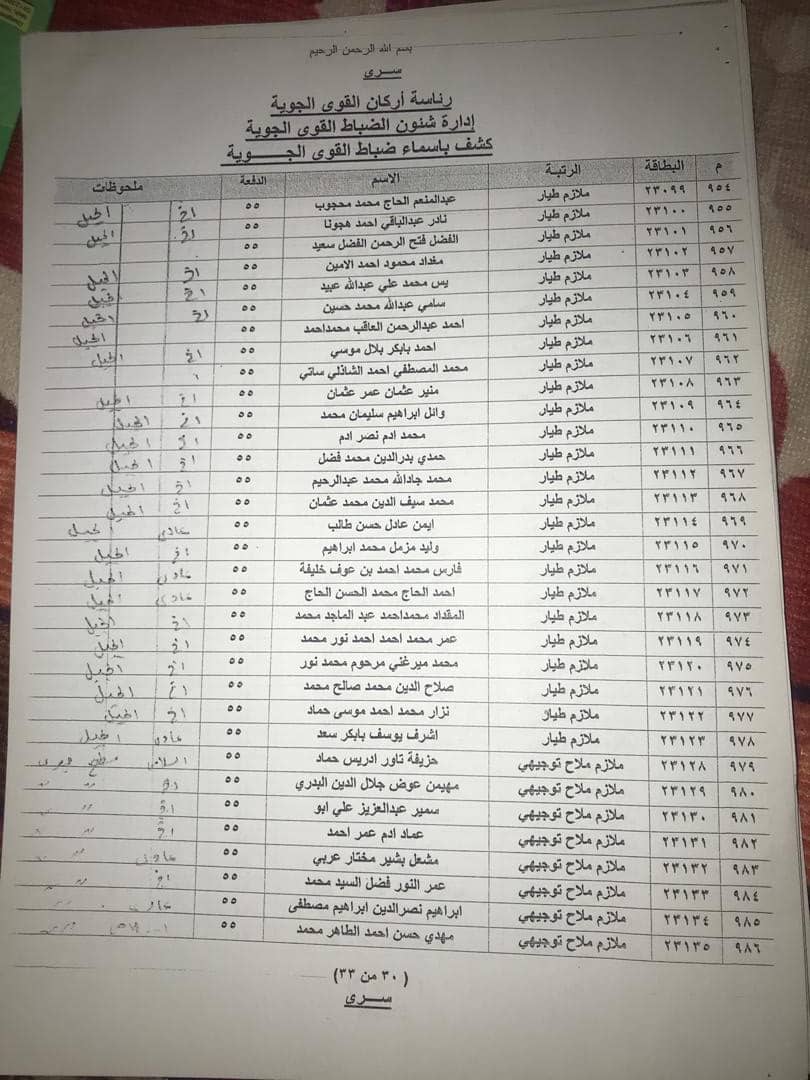 بسم الله الرحمن الرحيم
سـرى
رئاسة أركان القوى الجوية
إدارة شئون الضباط القوى الجوية
كشف باسماء ضباط القوى الجـــوية
م البطاقة الرتبة الاسم الدفعة ملحوظات
٩٥٤ ٢٣٠٩٩ ملازم طيار عبدالمنعم الحاج محمد محجوب ٥٥
٩٥٥ ٢٣١٠٠ ملازم طيار نادر عبدالباقي احمد هجونا ٥٥
٩٥٦ ٢٣١٠١ ملازم طيار الفضل فتح الرحمن الفضل سعيد ٥٥
٩٥٧ ٢٣١٠٢ ملازم طيار مغداد محمود احمد الامين ٥٥
٩٥٨ ٢٣١٠٣ ملازم طيار يس محمد علي عبدالله عبيد ٥٥
٩٥٩ ٢٣١٠٤ ملازم طيار سامي عبدالله محمد حسين ٥٥
٩٦٠ ٢٣١٠٥ ملازم طيار احمد عبدالرحمن العاقب محمداحمد ٥٥
٩٦١ ٢٣١٠٦ ملازم طيار احمد بابكر بلال موسي ٥٥
٩٦٢ ٢٣١٠٧ ملازم طيار محمد المصطفي احمد الشاذلي ساتي ٥٥
٩٦٣ ٢٣١٠٨ ملازم طيار منير عثمان عمر عثمان ٥٥
٩٦٤ ٢٣١٠٩ ملازم طيار وائل ابراهيم سليمان محمد ٥٥
٩٦٥ ٢٣١١٠ ملازم طيار محمد ادم نصر ادم ٥٥
٩٦٦ ٢٣١١١ ملازم طيار حمدي بدرالدين محمد فضل ٥٥
٩٦٧ ٢٣١١٢ ملازم طيار محمد جادالله محمد عبدالرحيم ٥٥
٩٦٨ ٢٣١١٣ ملازم طيار محمد سيف الدين محمد عثمان ٥٥
٩٦٩ ٢٣١١٤ ملازم طيار ايمن عادل حسن طالب ٥٥
٩٧٠ ٢٣١١٥ ملازم طيار وليد مزمل محمد ابراهيم ٥٥
٩٧١ ٢٣١١٦ ملازم طيار فارس محمد احمد بن عوف خليفة ٥٥
٩٧٢ ٢٣١١٧ ملازم طيار احمد الحاج محمد الحسن الحاج ٥٥
٩٧٣ ٢٣١١٨ ملازم طيار المقداد محمداحمد عبد الماجد محمد ٥٥
٩٧٤ ٢٣١١٩ ملازم طيار عمر محمد احمد احمد نور محمد ٥٥
٩٧٥ ٢٣١٢٠ ملازم طيار محمد ميرغني مرحوم محمد نور ٥٥
٩٧٦ ٢٣١٢١ ملازم طيار صلاح الدين محمد صالح محمد ٥٥
٩٧٧ ٢٣١٢٢ ملازم طيار نزار محمد احمد موسى حماد ٥٥
٩٧٨ ٢٣١٢٣ ملازم طيار اشرف يوسف بابكر سعد ٥٥
٩٧٩ ٢٣١٢٨ ملازم ملاح توجيهي حزيفة تاور ادريس حماد ٥٥
٩٨٠ ٢٣١٢٩ ملازم ملاح توجيهي مهيمن عوض جلال الدين البدري ٥٥
٩٨١ ٢٣١٣٠ ملازم ملاح توجيهي سمير عبدالعزيز علي ابو ٥٥
٩٨٢ ٢٣١٣١ ملازم ملاح توجيهي عماد ادم عمر احمد ٥٥
٩٨٣ ٢٣١٣٢ ملازم ملاح توجيهي مشعل بشير مختار عربي ٥٥
٩٨٤ ٢٣١٣٣ ملازم ملاح توجيهي عمر النور فضل السيد محمد ٥٥
٩٨٥ ٢٣١٣٤ ملازم ملاح توجيهي ابراهيم نصرالدين ابراهيم مصطفى ٥٥
٩٨٦ ٢٣١٣٥ ملازم ملاح توجيهي مهدي حسن احمد الطاهر محمد ٥٥
( ٣٠ من ٣٣)
سـرى